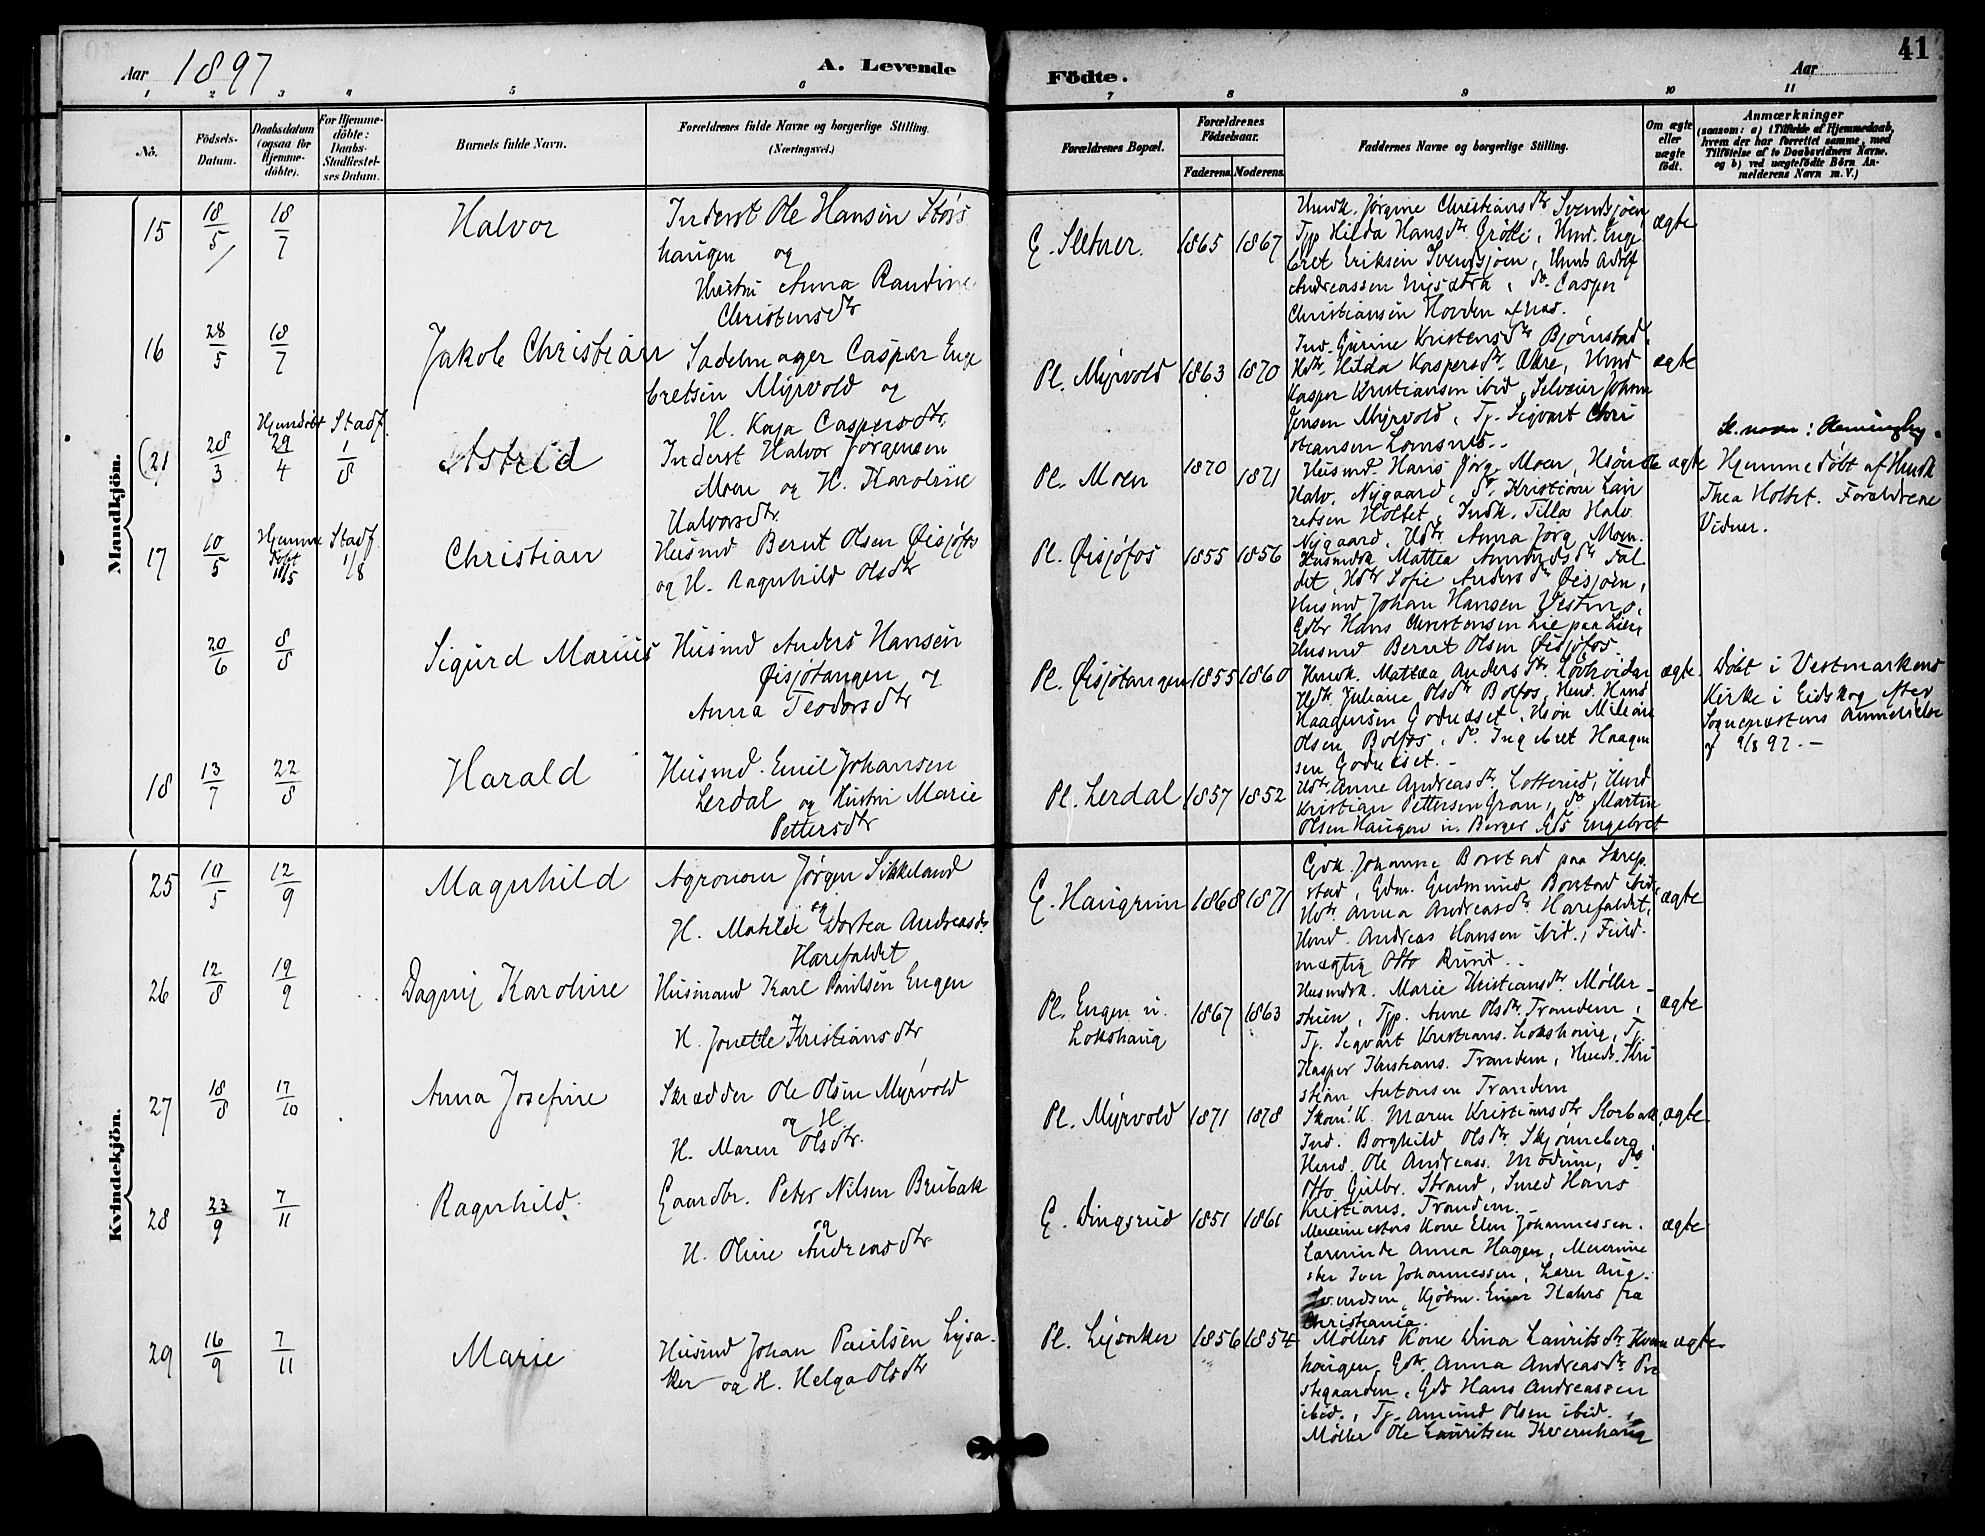 Aar 1897
A. Levende
Födte.
Aar
41
1 2 3 4 5 6 7 8 9 10 11
No.
Födsels-
Datum.
Daabsdatum
(ogsaa for
Hjemme-
döbte).
For Hjemme-
döbte:
Daabs-
Stadfæstel-
ses Datum.
Barnets fulde Navn.
Forældrenes fulde Navne og borgerlige Stilling.
(Næringsvei.)
Forældrenes Bopæl.
Forældrenes
Födselsaar.
Faderens. Moderens.
Faddernes Navne og borgerlige Stilling.
Om ægte
eller
uægte
födt.
Anmærkninger
(saasom: a) i Tilfælde af Hjemmedaab,
hvem der har forrettet samme, med
Tilföielse af to Daabsvidners Navne,
og b) ved uægtefödte Börn An-
melderens Navn m. V.)
Mandkjön.
15 18/5 18/7 Halvor
Inderst Ole Hansen Störs
haugen og
Hustru Anna Randine
Christensdtr
G. Sletner. 1865 1867
Husk. Jørgine Christiansdtr Svensjøen,
Tjp Hilda Hansdtr Grötli, Hmd. Enge
bret Eriksen Svensjøen, Hmds Adolf
Andreassen Nysætra, do. Casper
Christiansen Hovden af Nas.
ægte
16 28/5 18/7 Jakob Christian
Sadelmager Casper Enge
bretsen Myrvold og
H. Kaja Caspersdtr.
Pl. Myrvold 1863 1870
Ind. Gurine Kristensdtr Bjørnstad.
Hdtr. Hilda Kaspersdtr Økre, Hmd
Kasper Kristiansen ibid, Selveier Johan
Jensen Myrvold, Tj. Sigvart Chri
stiansen Lomsnes.
ægte
(21 28/3 Hjemdöbt 29/4 Stadf. 1/8 Astrid
Inderst Halvor Jörgensen
Moen og H. Karoline
Halvorsdtr.
Pl. Moen 1870 1871
Husmd. Hans Jörg. Moen, Hsön Ole
Halv. Nygaard, do. Kristian Lau
retsen Holtet, Indk. Tilla Halv.
Nygaard, Hdtr Anna Jörg. Moen.
ægte
Sl.navn: Hemingby.
Hjemmedöbt af Husmk
Thea Holtet. Forældrene
Vidner.
17 10/5 Hjemme döbt 18/5 Stadf. 1/8 Christian
Husmd Bernt Olsen Øisjöfos
og H. Ragnhild Olsdtr
Pl. Øisjöfos 1855 1856
Husmdsk Mattea Amundsdtr Fal
det, Hdtr Sofie Andersdtr Øisjøen,
Husmd Johan Hansen Vestmo,
Gdbr Hans Christensen Lie paa Lier,
Husmd Bernt Olsen Øisjöfos.
20/6 8/8 Sigurd Marius
Husmd Anders Hansen
Øisjötangen og
Anna Teodorsdtr
Pl. Øisjötangen 1855 1860
Husmk. Mattea Andersdtr. Lövhöidan
Hdtr Juliane Olsdtr Bolfos, Hmd. Hans
Haagensen Godudset, Hsön Milian
Olsen Bolfos, do. Ingebret Haagen
sen Godudset.
ægte.
Döbt i Vestmarkens
Kirke i Eidskog efter
Sognepræstens Anmeldelse
af 9/8 97.
18 13/7 22/8 Harald
Husmd. Emil Johansen
Lerdal og Hustru Marie
Pettersdtr
Pl. Lerdal 1857 1852
Hdtr. Anne Andreasdtr Lotterud, Hmd
Kristian Pettersen Gran, do Martin
Olsen Haugen u. Berger, Gds Engebret
Kvindekjön.
25 10/5 12/9 Magnhild
Agronom Jørgen Sikkeland
og
H. Matilde Dortea Andreasdtr.
Harefaldet
G. Haugrim 1868 1871
Gdk Johanne Borstad paa Skrep
stad, Gdm. Gudmund Borstad ibid,
Hdtr. Anna Andreasdtr. Harefaldet,
Hmd. Andreas Hansen ibid., Fuld
mægtig Otto Rund.
ægte
26 12/8 19/9 Dagny Karoline
Husmand Karl Paulsen Engen
H. Jonette Kristiansdtr
Pl. Engen u.
Lokshaug
1867 1863
Husmdsk. Marie Kristiansdtr. Møller-
stuen, Tjp. Anne Olsdtr. Trandem,
Tj. Sigvart Kristians. Lokshaug, Tj.
Kasper Kristians. Trandem, Husmd. Kri
stian Antonsen Trandem
ægte
27 18/8 17/10 Anna Josefine
Skrædder Ole Olsen Myrvold
og H.
H. Maren Olsdtr.
Pl. Myrvold 1871 1878
Skom. K. Maren Kristiansdtr Storbak,
Ind. Borghild Olsdtr. Skjönneberg,
Hmd. Ole Andreass. Modum, do
Otto Gulbr. Strand, Smed Hans
Kristians. Trandem.
ægte
28 23/9 7/11 Ragnhild.
Gaardbr. Peter Nilsen Brubak
og
H. Oline Andreasdtr
G. Dingsrud 1851 1861
Meierimesters Kone Elen Johannessen.
Lærerinde Anna Hagen, Meierime
ster Iver Johannessen, Lærer Aug.
Svendsen, Kjöbm. Einar Kahrs fra
Christiania.
ægte
29 16/9 7/11 Marie
Husmd Johan Paulsen Lysa-
ker og H. Helga Olsdtr
Pl. Lysaker 1856 1854
Møllers Kone Dina Lauritsdtr. Kvern
haugen, Gdtr. Anna Andreasdtr. Pre
stegaarden, Gds Hans Andreassen
ibid., Tj. Amund Olsen ibid.,
Møller Ole Lauritsen Kvernhaug
ægte